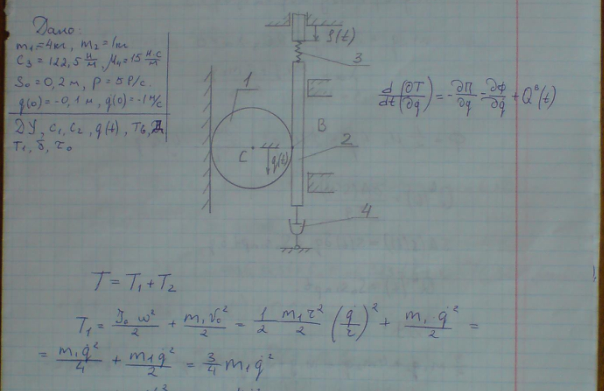 Дано:
m₁=4кг, m₂=1кг
C₃=122,5 Н/м, μ₄=15 Н·с/м
S₀=0,2 м, p=5 1/с
q(0)=-0,1 м, q̇(0)=-1 м/с
ДУ, c₁, c₂, q(t), T₁, δ, τ₀
S(t)
3
1
B
2
C
q(t)
4
d/dt(∂T/∂q̇)=-∂П/∂q-∂Ф/∂q̇+Qᵇ(t)
T=T₁+T₂
T₁= J₀ω²/2 + m₁v₀²/2 = 1/2 m₁r²/2 (q̇/r)² + m₁·q̇²/2 =
= m₁q̇²/4 + m₁q̇²/2 = 3/4 m₁q̇²